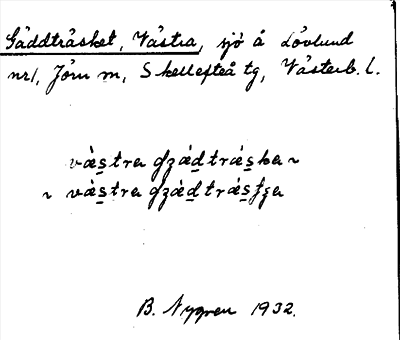 Gäddträsket, Västra, sjö å Lövlund
nr 1, Jörn sn, Skellefteå tg, Västerb. l.
västra gzäd träska ~
~ västra gzäd träsfza
B. Nygren 1932.